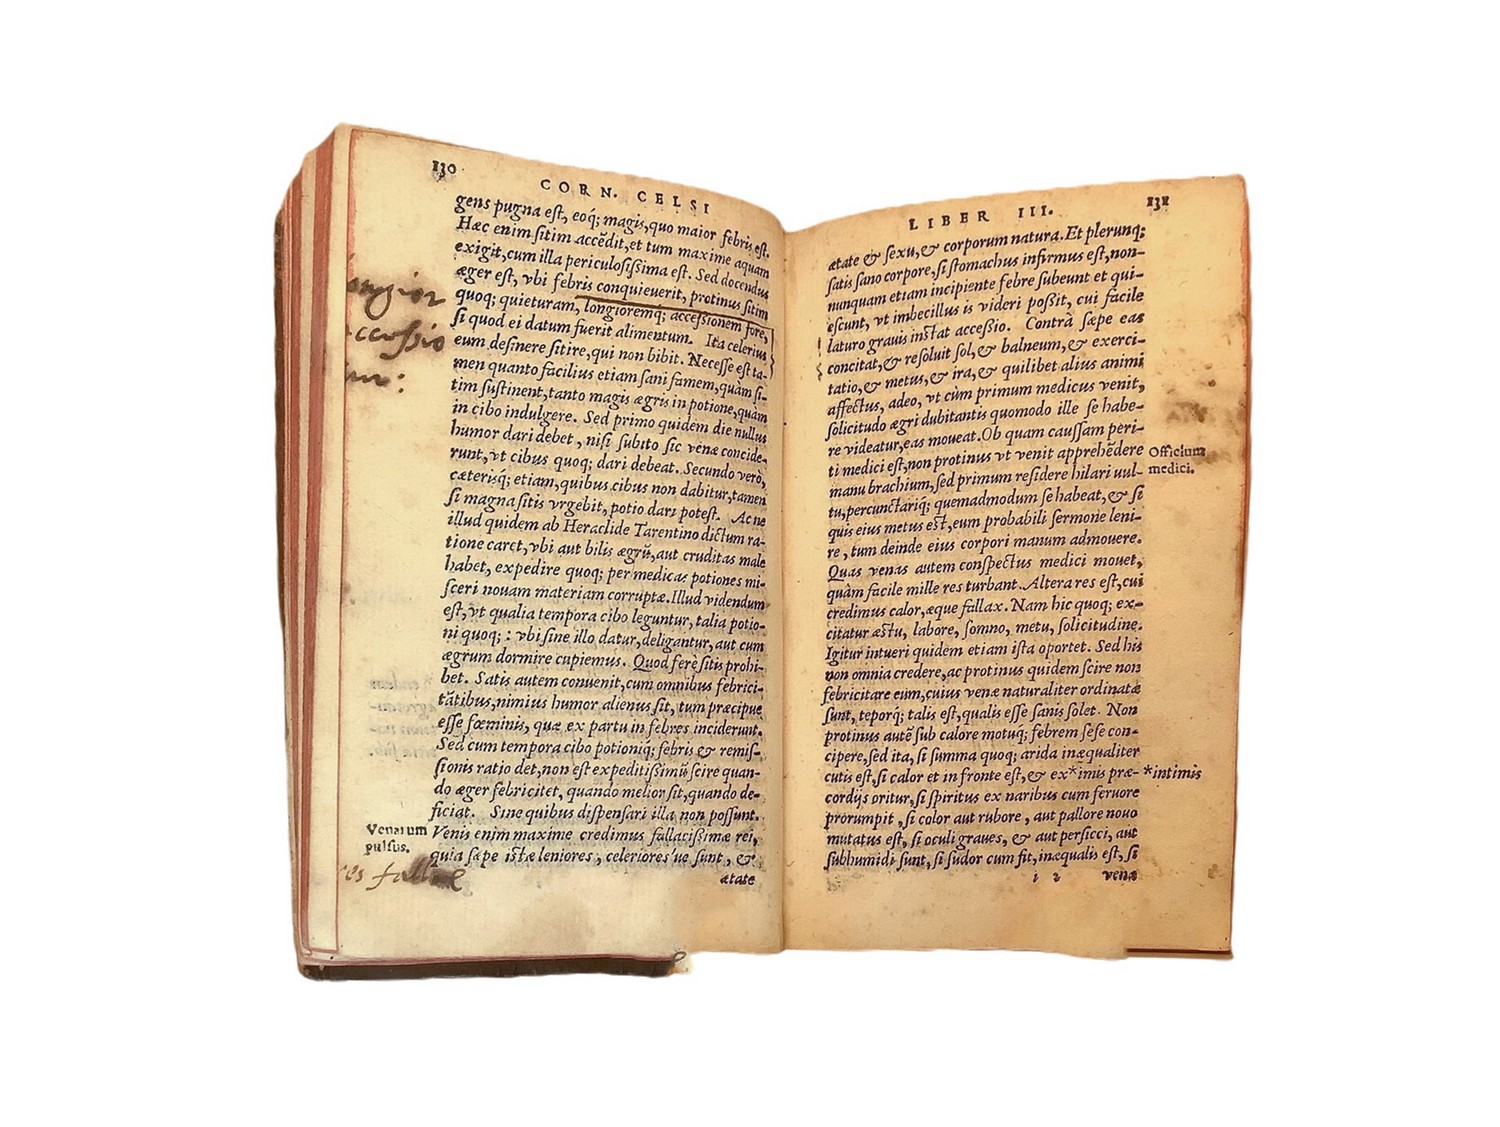 130
CORN. CELSI
gens pugna est, eoq́; magis, quo maior febris est.
Hæc enim sitim accẽdit, et tum maxime aquam
exigit, cum illa periculosissima est. Sed docendus
æger est, vbi febris conquieuerit, protinus sitim
quoq; quieturam, longioremq; accessionem fore,
si quod ei datum fuerit alimentum. Ita celerius
eum desinere sitire, qui non bibit. Necesse est ta-
men quanto facilius etiam sani famem, quàm si-
tim sustinent, tanto magis ægris in potione, quàm
in cibo indulgere. Sed primo quidem die nullus
humor dari debet, nisi subito sic venæ concide-
runt, vt cibus quoq; dari debeat. Secundo verò,
cæterisq́; etiam, quibus cibus non dabitur, tamen
si magna sitis vrgebit, potio dari potest. Ac ne
illud quidem ab Heraclide Tarentino dictum ra-
tione caret, vbi aut bilis ægrũ, aut cruditas male
habet, expedire quoq; per medicas potiones mi-
sceri nouam materiam corruptæ. Illud videndum
est, vt qualia tempora cibo leguntur, talia potio-
ni quoq; : vbi sine illo datur, deligantur, aut cum
ægrum dormire cupiemus. Quod ferè sitis prohi-
bet. Satis autem conuenit, cum omnibus febrici-
tãtibus, nimius humor alienus sit, tum præcipue
esse fœminis, quæ ex partu in febres inciderunt.
Sed cum tempora cibo potioniq́; febris & remis-
sionis ratio det, non est expeditissimũ scire quan-
do æger febricitet, quando melior sit, quando de-
ficiat. Sine quibus dispensari illa non possunt.
Venarum
pulsus.
Venis enim maxime credimus fallacissimæ rei,
quia sæpe istæ leniores, celeriores'ue sunt, &
ætate
ccessio
LIBER III.
131
ætate & sexu, & corporum natura. Et plerunq;
satis sano corpore, si stomachus infirmus est, non-
nunquam etiam incipiente febre subeunt et qui-
escunt, vt imbecillus is videri poßit, cui facile
laturo grauis instat accessio. Contrà sæpe eas
concitat, & resoluit sol, & balneum, & exerci-
tatio, & metus, & ira, & quilibet alius animi
affectus, adeo, vt cùm primum medicus venit,
solicitudo ægri dubitantis quomodo ille se habe-
re videatur, eas moueat. Ob quam caussam peri-
ti medici est, non protinus vt venit apprehẽdere
manu brachium, sed primum residere hilari uul-
tu, percunctariq́; quemadmodum se habeat, & si
quis eius metus est, eum probabili sermone leni-
re, tum deinde eius corpori manum admouere.
Quas venas autem conspectus medici mouet,
quàm facile mille res turbant. Altera res est, cui
credimus calor, æque fallax. Nam hic quoq; ex-
citatur æstu, labore, somno, metu, solicitudine.
Igitur intueri quidem etiam ista oportet. Sed his
non omnia credere, ac protinus quidem scire non
febricitare eum, cuius venæ naturaliter ordinatæ
sunt, teporq́; talis est, qualis esse sanis solet. Non
protinus autẽ sub calore motuq; febrem sese con-
cipere, sed ita, si summa quoq; arida inæqualiter
cutis est, si calor et in fronte est, & ex*imis præ-
cordijs oritur, si spiritus ex naribus cum feruore
prorumpit, si color aut rubore, aut pallore nouo
mutatus est, si oculi graues, & aut persicci, aut
subhumidi sunt, si sudor cum fit, inæqualis est, si
i 2 venæ
Officium
medici.
*intimis